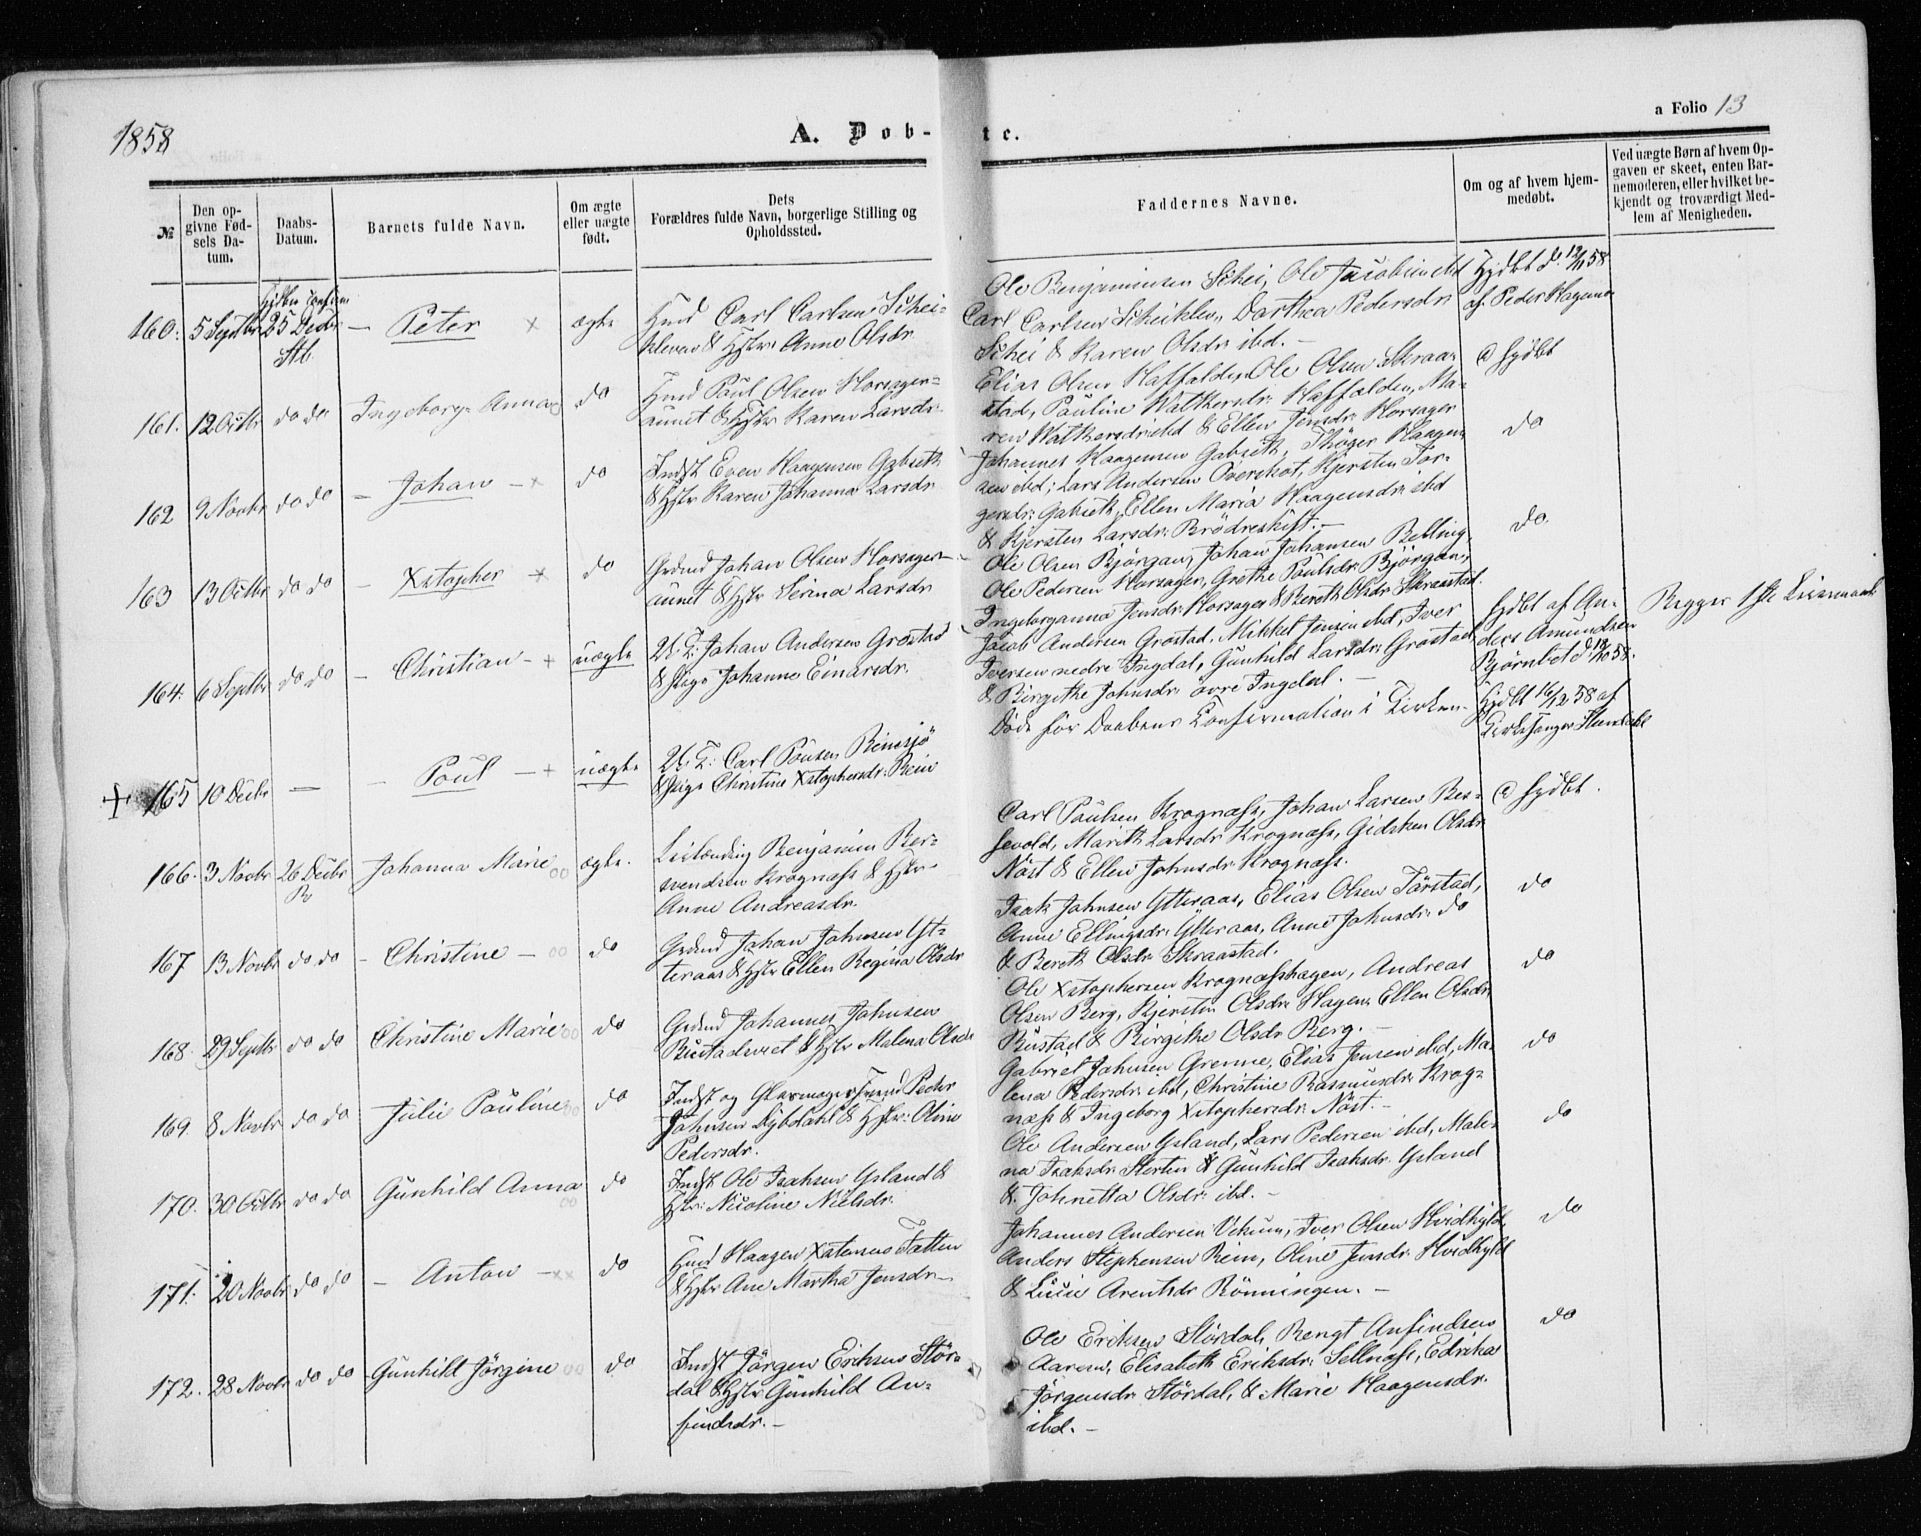 1858
A. Døb-
te.
a Folio 13
№
Den op-
givne Fød-
sels Da-
tum.
Daabs-
Datum.
Barnets fulde Navn.
Om ægte
eller uægte
født.
Dets
Forældres fulde Navn, borgerlige Stilling og
Opholdssted.
Faddernes Navne.
Om og af hvem hjem-
medøbt.
Ved uægte Børn af hvem Op-
gaven er skeet, enten Bar-
nemoderen, eller hvilket be-
kjendt og troværdigt Med-
lem af Menigheden.
160. 5 Septbr 25 Decbr — Peter × ægte
Carl Carlsen Schei-
kleven & Hstr: Anne Olsdr
Ole Benjaminsen Schei, Ole Jacobsen ibd
Carl Carlsen Scheiklev, Dorthea Pedersdr
Schei & Karen Olsdr ibd. —
Hjdbt d. 12/11 58
af Peder Hagemo
161. 12 Octbr do do Ingeborg Anna do
Hmd Paul Olsen Horsager=
aunet & Hstr Karen Larsdr.
Elias Olsen Haffalden, Ole Olsen Skraa=
stad, Pauline Walkersdr: Haffalden, Ma-
ren Walkersdr ibd & Ellen Jensdr: Horsager
@ hjdbt
162 9 Novbr do do — Johan — × do
Indst Even Haagensen Gabseth
& Hstr Karen Johanna Larsdr
Johannes Haagensen Gabseth, Thøger Haagen-
sen ibd; Lars Andersen Overskot, Kjersten Tor-
gersdr: Gabseth, Ellen Maria Haagensdr: ibd
& Kjersten Larsdr: Brödreskift. —
do
163 13 Octbr do do — Xstopher — × do
Grdmd Johan Olsen Horsager-
aunet & Hstr Serina Larsdr
Ole Olsen Bjørgan, Johan Johansen Belling,
Ole Pedersen Horsager, Grethe Paulsdr: Bjørgan,
Ingeborganna Jensdr: Horsager & Bereth Olsdr: Skraastad.
do
164. 6 Septbr do do — Christian — + uægte
U. K: Johan Andersen Grøstad
& Pige Johanne Einarsdr.
Jacob Andersen Grøstad, Mikkel Jensen ibd, Iver
Iversen nedre Ingdal, Gunhild Larsdr: Grøstad
& Birgithe Johnsdr: övre Ingdal. —
hjdbt af An-
ders Amundsen
Bjørnbet d. 12/10 58.
Begges 1ste Leiermaal
+ 165 10 Decbr — — Poul — + uægte
U. K: Carl Povsen Reinsjö
& Pige Christine Xstophersdr: Rein
Døde før Daabens Confirmation i Kirken.
hjdbt 16/12 58 af
Kirkesanger
166. 3 Novbr 26 Decbr Johanna Marie ægte.
Leilænding Benjamin Ber-
svendsen Krognæss & Hstr-
Anne Andreasdr.
Carl Paulsen Krognæss, Johan Larsen Bes-
sevold, Marith Larsdr: Krognæss, Gidsken Olsdr
Näst & Ellen Johnsdr: Krognæss.
@ hjdbt.
167 13 Novbr do do — Christine — do
Grdmd Johan Johnsen Yt-
teraas & Hstr Ellen Regina Olsdr
Isak Johnsen Ytteraas, Elias Olsen Tårstad,
Anne Ellingsdr: Ytteraas, Anne Johnsdr: do
& Bereth Olsdr: Skraastad.
do
168. 29 Septbr do do Christine Marie do
Grdmd Johannes Johnsen
Bustadsvet & Hstr Malena Olsdr
Ole Xstophersen Krognæsshagen, Andreas
Olsen Berg, Kjersten Olsdr: Hagen, Ellen Olsdr:
Bustad & Birgithe Olsdr Berg. —
do
169. 8 Novbr do do Julie Pauline do
Indst og Peder
Johnsen Dybdahl & Hstr: Oline
Pedersdr.
Gabriel Johnsen Grenne, Elias Jensen ibd, Ma-
lena Pedersdr: ibd, Christine Rasmusdr: Krog-
næss & Ingeborg Xstophersdr: Näst. —
do
170. 30 Octbr do do Gunhild Anna do
Indst Ole Isaksen Ysland &
Hstr: Nicoline Nielsdr:
Ole Andersen Ysland, Lars Pedersen ibd, Male-
na Isaksdr: Sterten & Gunhild Isaksdr: Ysland
& Johnetta Olsdr: ibd. —
do
171. 20 Novbr do do — Anton — ×× do
Hmd Haagen Xstensen Fatten
& Hstr Ane Martha Jensdr —
Johannes Andersen Vekum, Iver Olsen Hvidkyld,
Anders Stephensen Rein, Oline Jensdr: Hvidkyld
& Lucie Arentsdr Rönningen. —
do
172. 28 Novbr do do Gunhild Jörgine do
Indst Jörgen Eriksen Stör-
dal & Hstr Gunhild An-
findsdr. —
Ole Eriksen Stördal, Bengt Anfindsen
Aaren, Elisabeth Eriksdr: Sellnæss, Edrika
Jörgensdr: Stördal, & Marie Haagensdr:
ibd. —
do